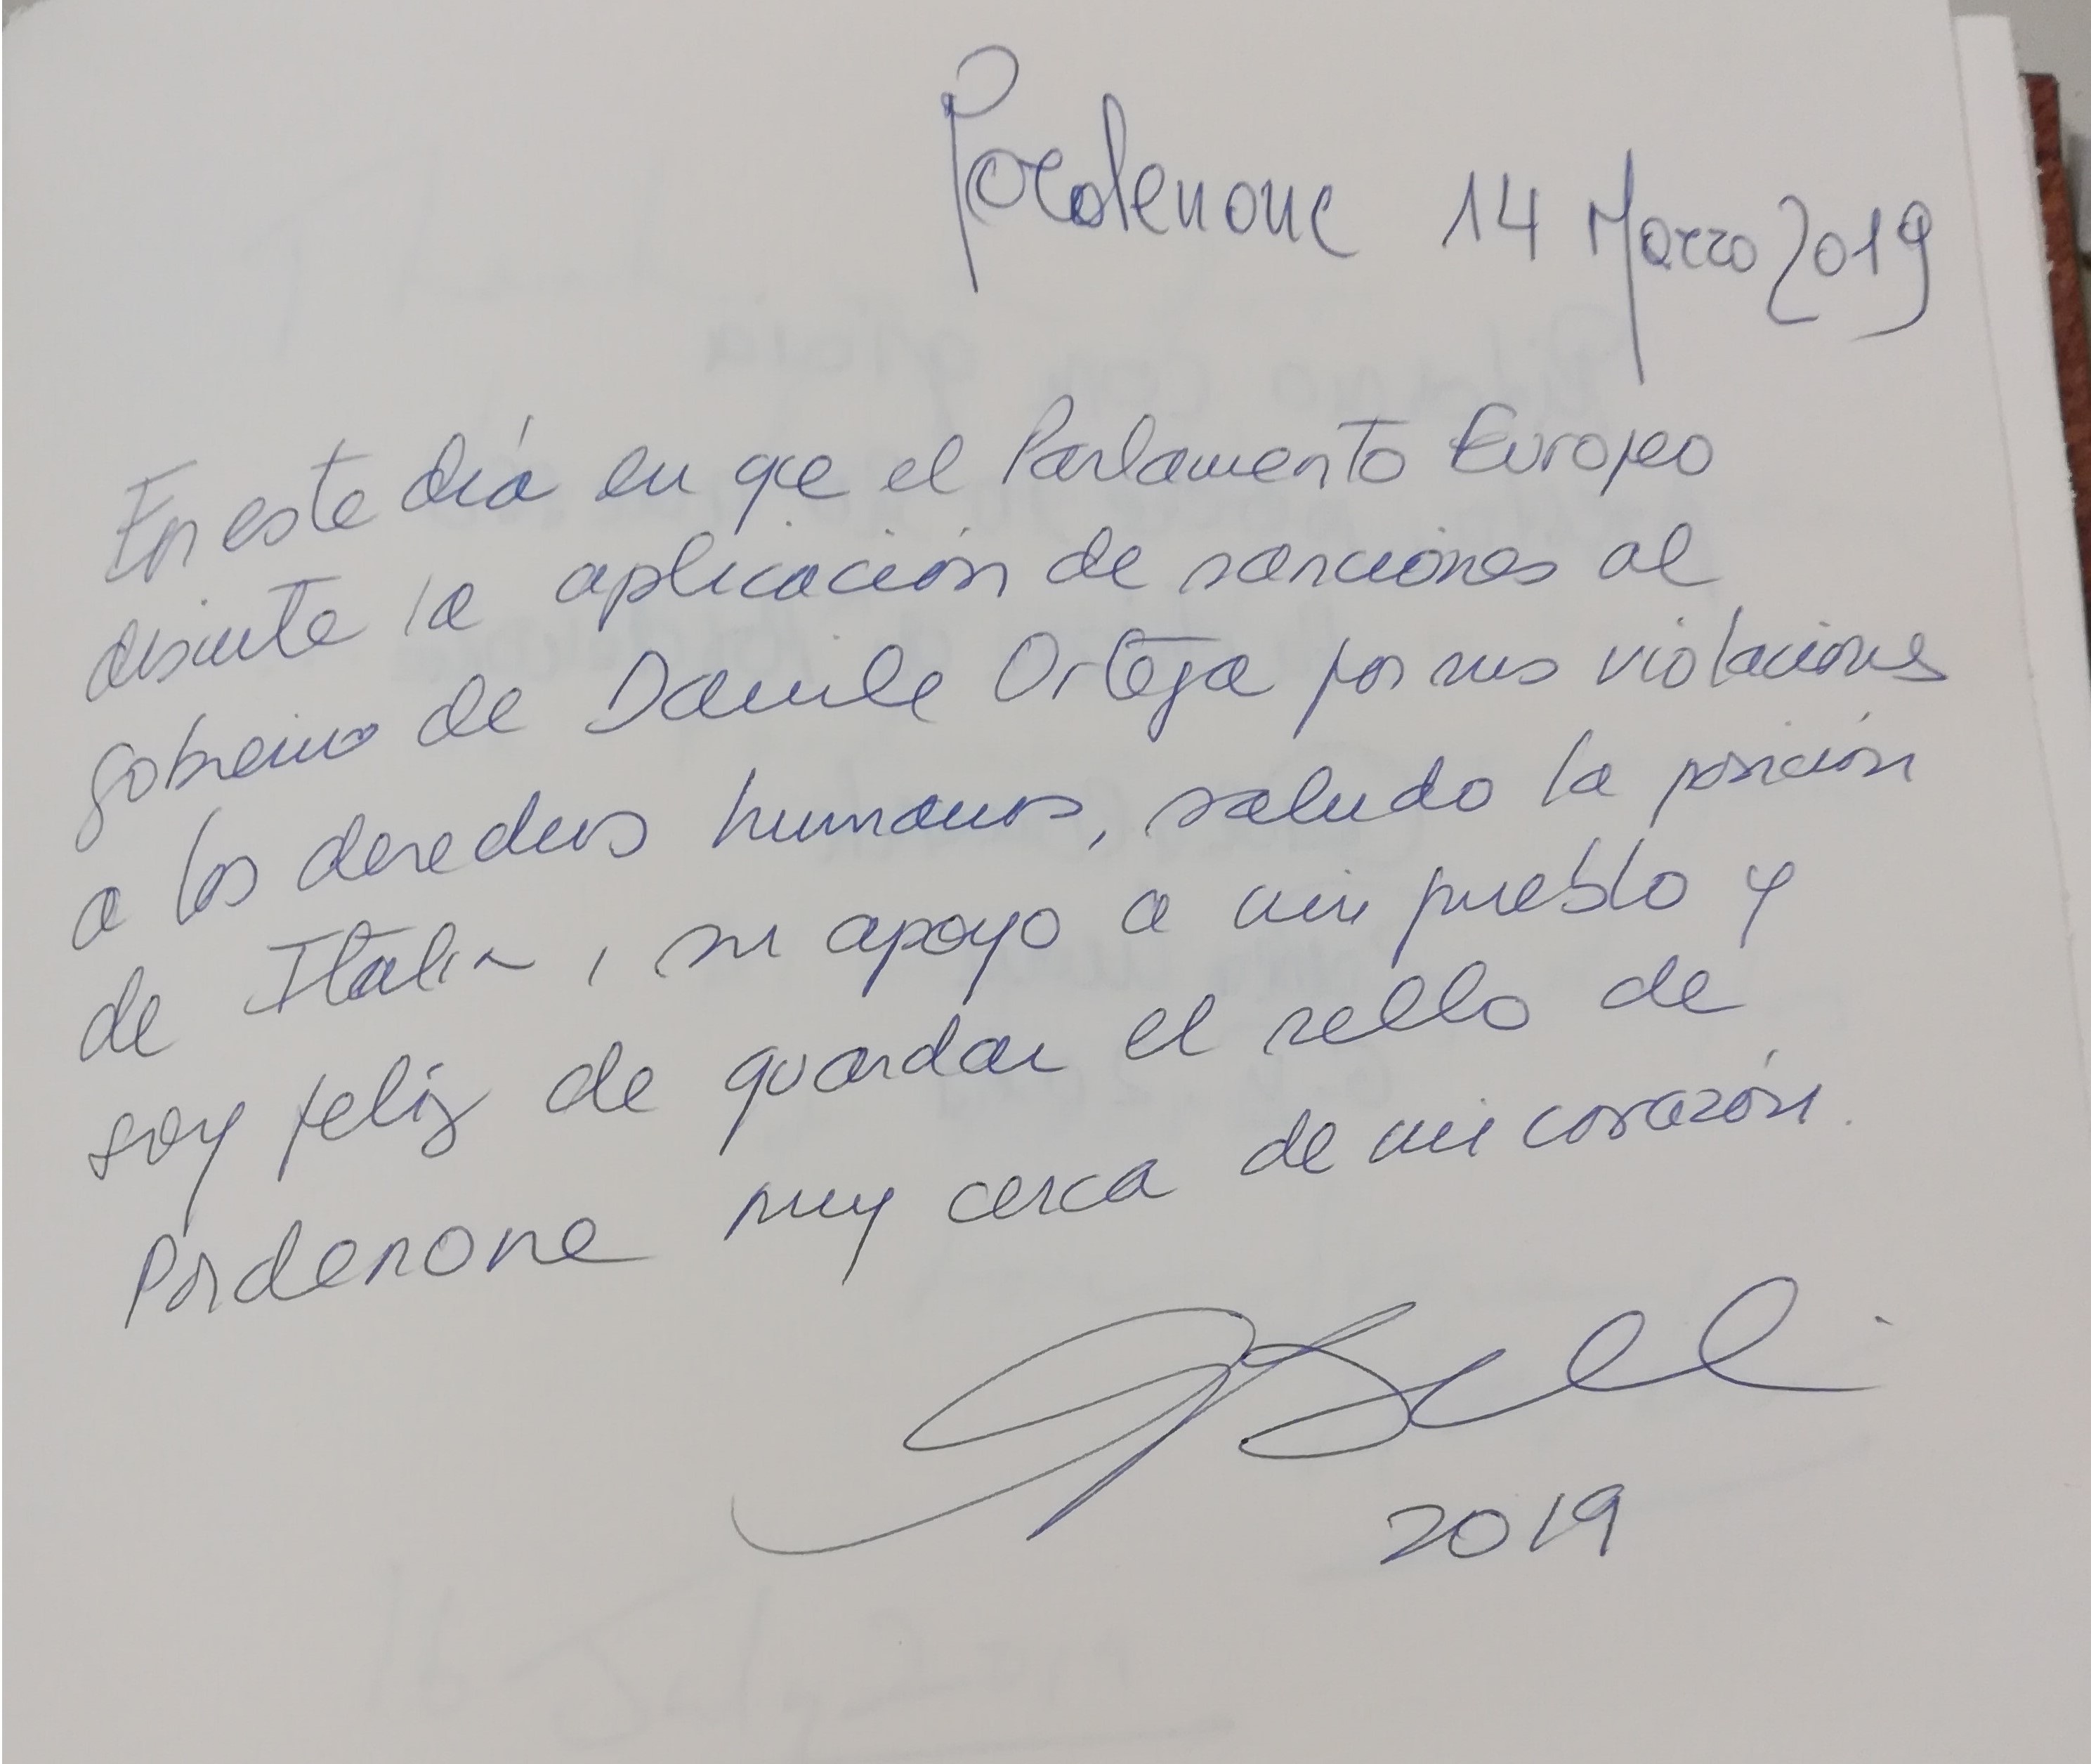 Pordenone 14 Marzo 2019
En este día en que el Parlamento Europeo
discute la aplicación de sanciones al
gobierno de Daniel Ortega por sus violaciones
a los derechos humanos, saludo la posición
de Italia, su apoyo a mi pueblo y
soy feliz de guardar el sello de
Pordenone muy cerca de mi corazón.
2019